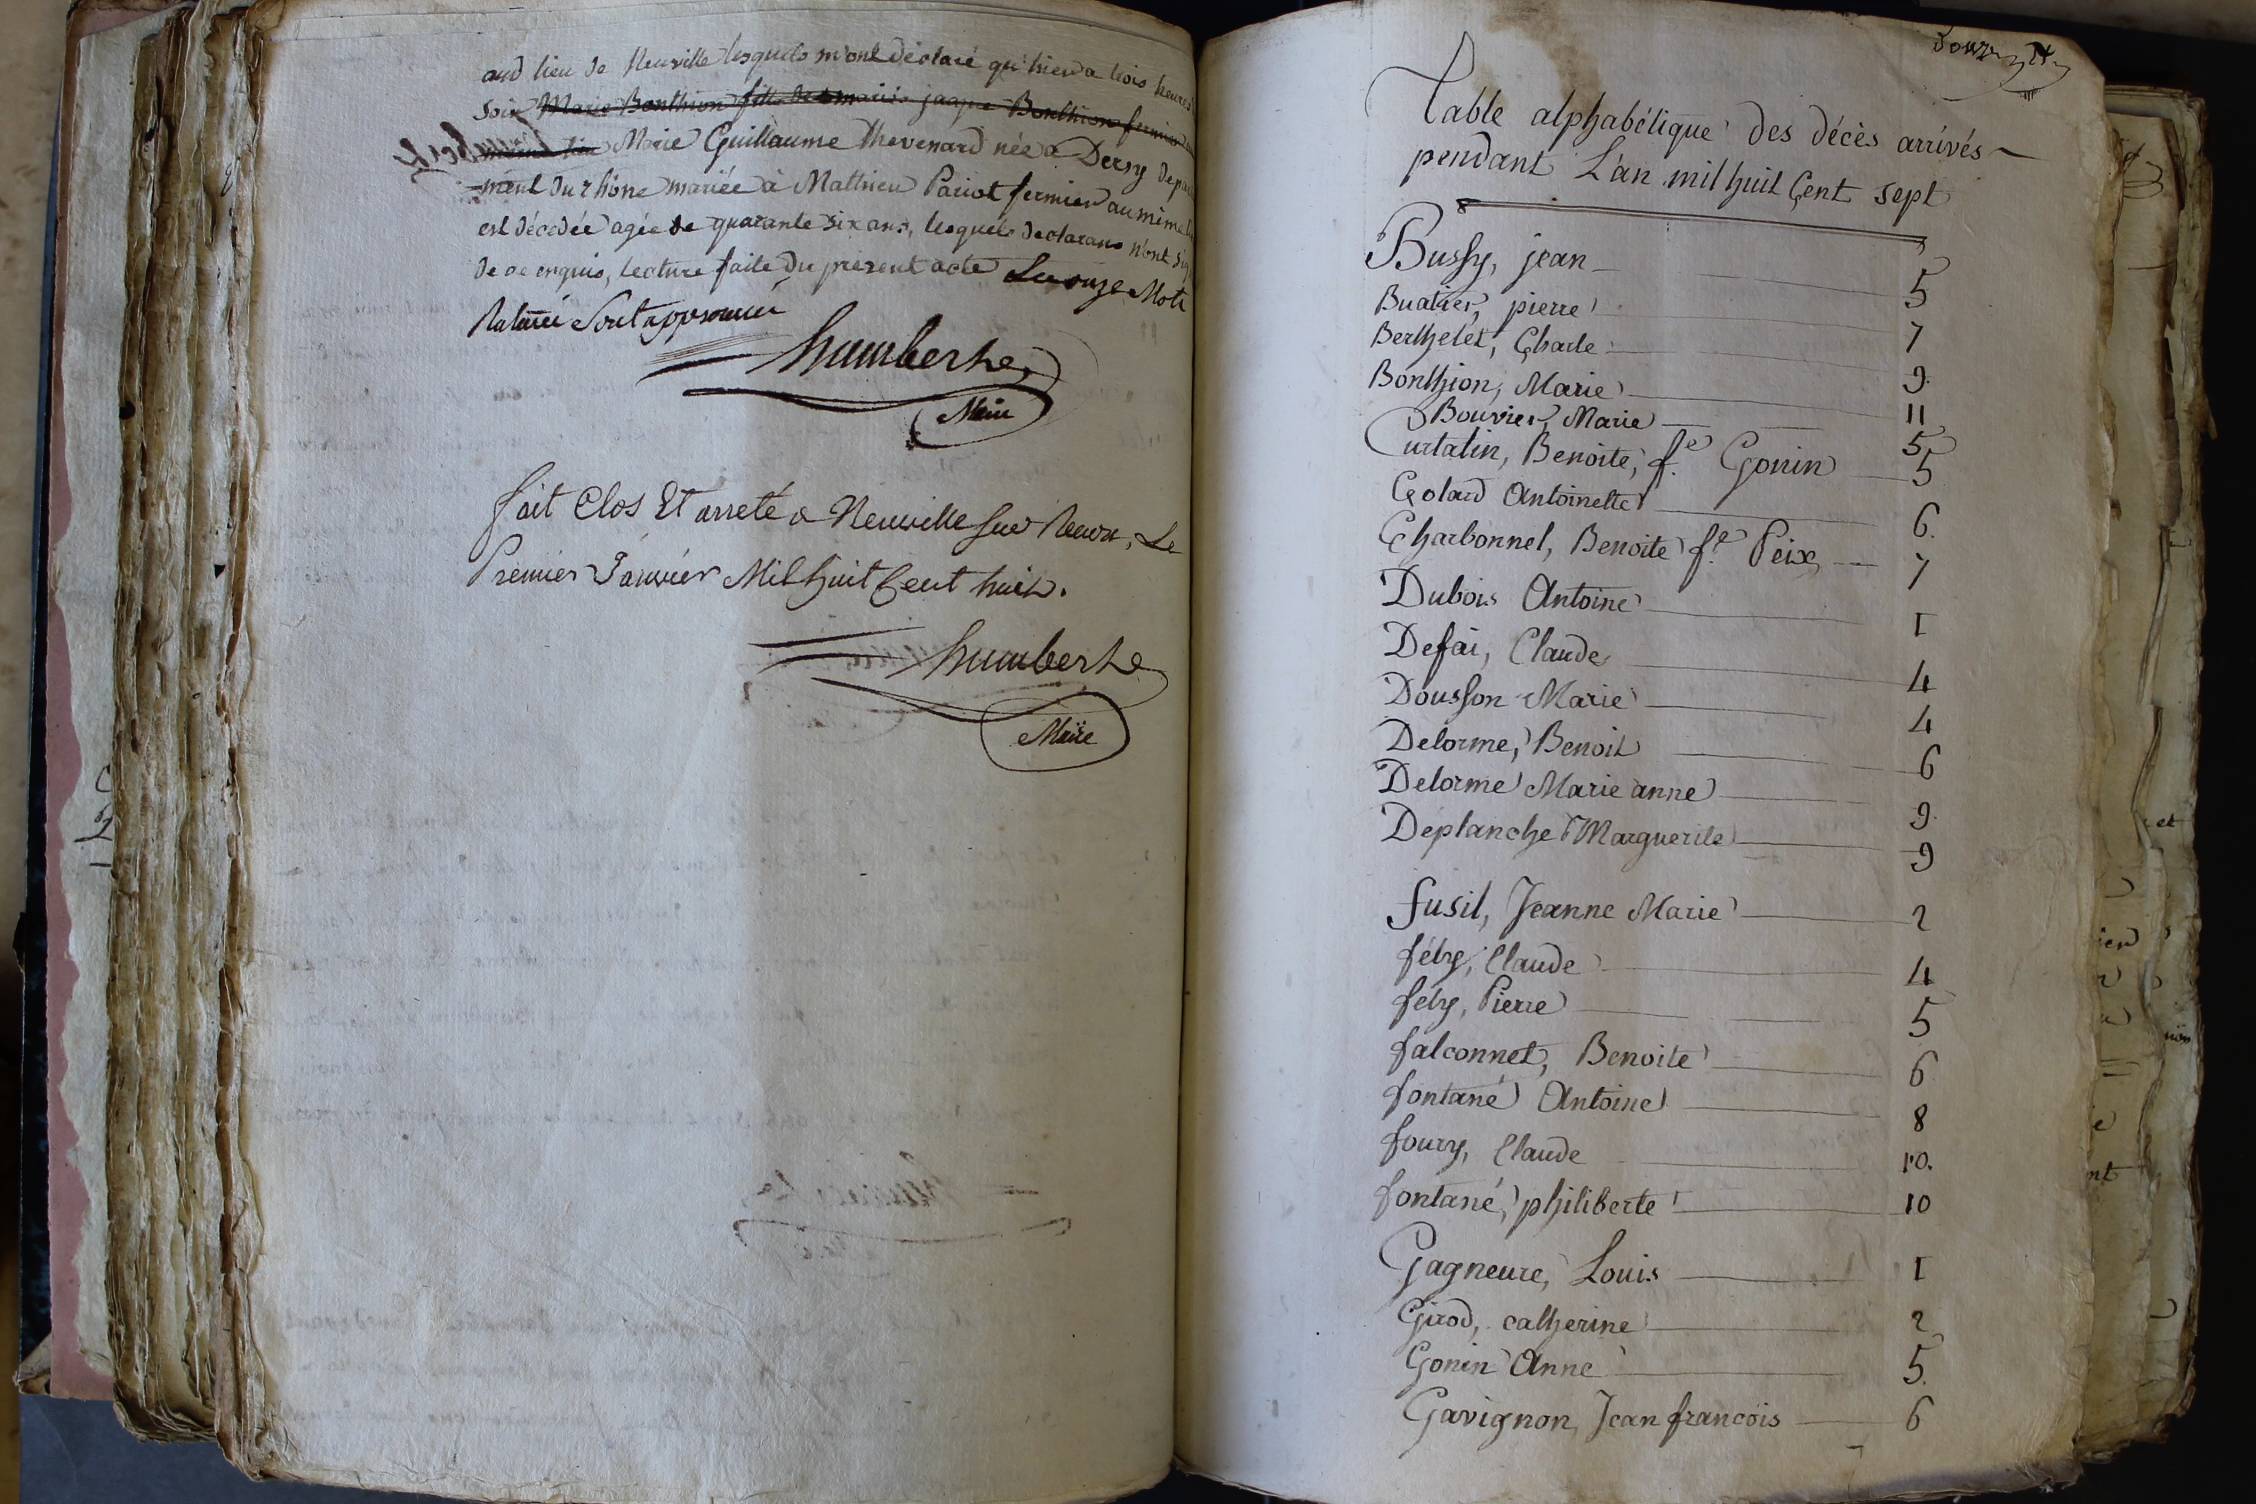 aud lieu de Neuville lesquels m'ont déclaré qu'hier a trois heures
soir Marie Bonthion fille de mariés jaque Bonthion fermier
même lieu Marie Guillaume Thevenard née a Dersy depar
humbert
-ment du rhône mariée à Mathieu Pariot fermier au même
est décédée agée de quarante six ans, lesquels declarans n'ont sig
de ce enquis, lecture faite du présent acte Les onze Mots
Raturé Sont approuvé
humbert
Maire
fait Clos Et arreté a Neuville sur Renon, Le
Premier Janvier Mil huit Cent huit.
humbert
Maire
Douze
Table alphabétique des décès arrivés
pendant L'an mil huit Cent sept
Bussy, jean 5
Buatier, pierre 7
Berthelet, Charle 9.
Bonthion, Marie 11
Bouvier, Marie 5
Curtatin, Benoite, f.e Gonin 5
Colard Antoinette 6.
Charbonnel, Benoite f.e Peix 7
Dubois Antoine 1
Defai, Claude 4
Dousson Marie 4
Delorme, Benoit 6
Delorme Marie anne 9.
Deplanche Marguerite 9
fusil, Jeanne Marie 2
féby, Claude 4
féby, Pierre 5
falconnet, Benoite 6
fontané Antoine 8
foury, Claude 10.
fontané, philiberte 10
Gagneure, Louis 1
Girod, catherine 2
Gonin Anne 5.
Gavignon, Jean françois 6